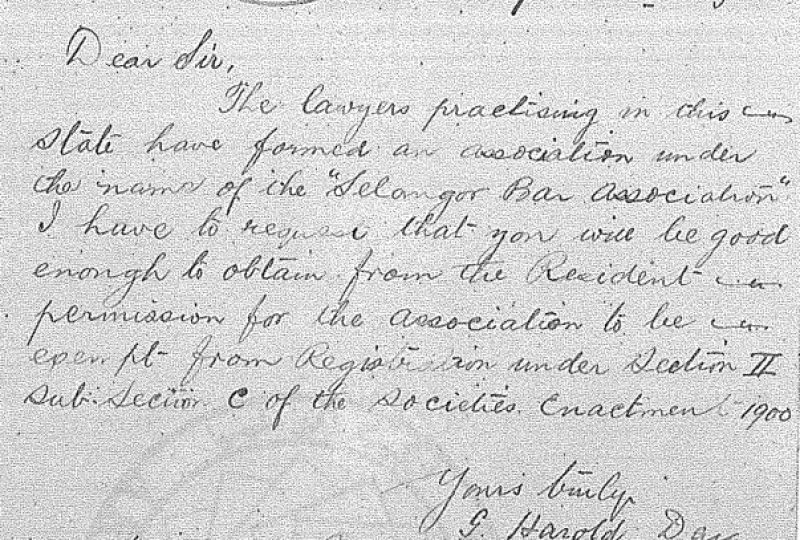 Dear Sir,
The lawyers practising in this
State have formed an association under
the name of the "Selangor Bar Association"
I have to request that you will be good
enough to obtain from the Resident
permission for the Association to be
exempt from Registration under Section II
Sub: Section C of the Societies Enactment 1900
Yours truly
G. Harold Day